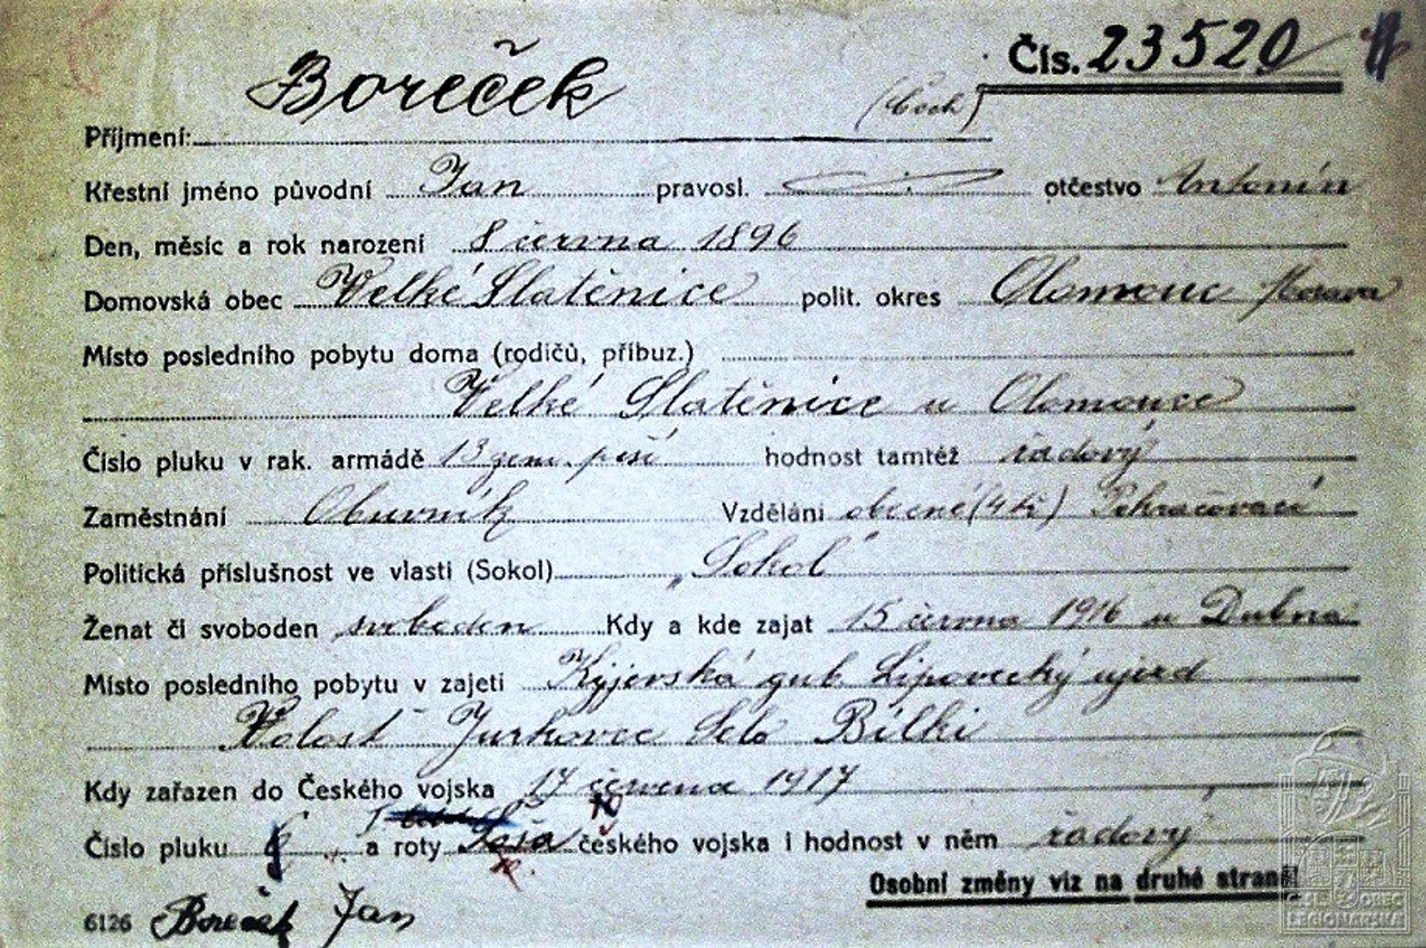 Čís. 23520
Boreček
Příjmení:
Křestní jméno původní Jan pravosl. otčestvo Antonín
Den, měsíc a rok narození 8 června 1896
Domovská obec Velké Slatěnice polit. okres Olomouc Morava
Místo posledního pobytu doma (rodičů, příbuz.)
Velké Slatěnice u Olomouce
Číslo pluku v rak. armádě 13 zem. pěší hodnost tamtéž řadový
Zaměstnání Obuvník Vzdělání obecné (4 tř) Pokračovací
Politická příslušnost ve vlasti (Sokol) „Sokol"
Ženat či svoboden svoboden Kdy a kde zajat 15 června 1916 u Dubna
Místo posledního pobytu v zajetí Kyjevská gub. Lipovecký ujezd
Volost Jurkovce Selo Bílki
Kdy zařazen do Českého vojska 17 července 1917
Číslo pluku 6 a roty českého vojska i hodnost v něm řadový
Osobní změny viz na druhé straně!
6126 Boreček Jan
ČSL. OBEC
LEGIONÁŘSKÁ